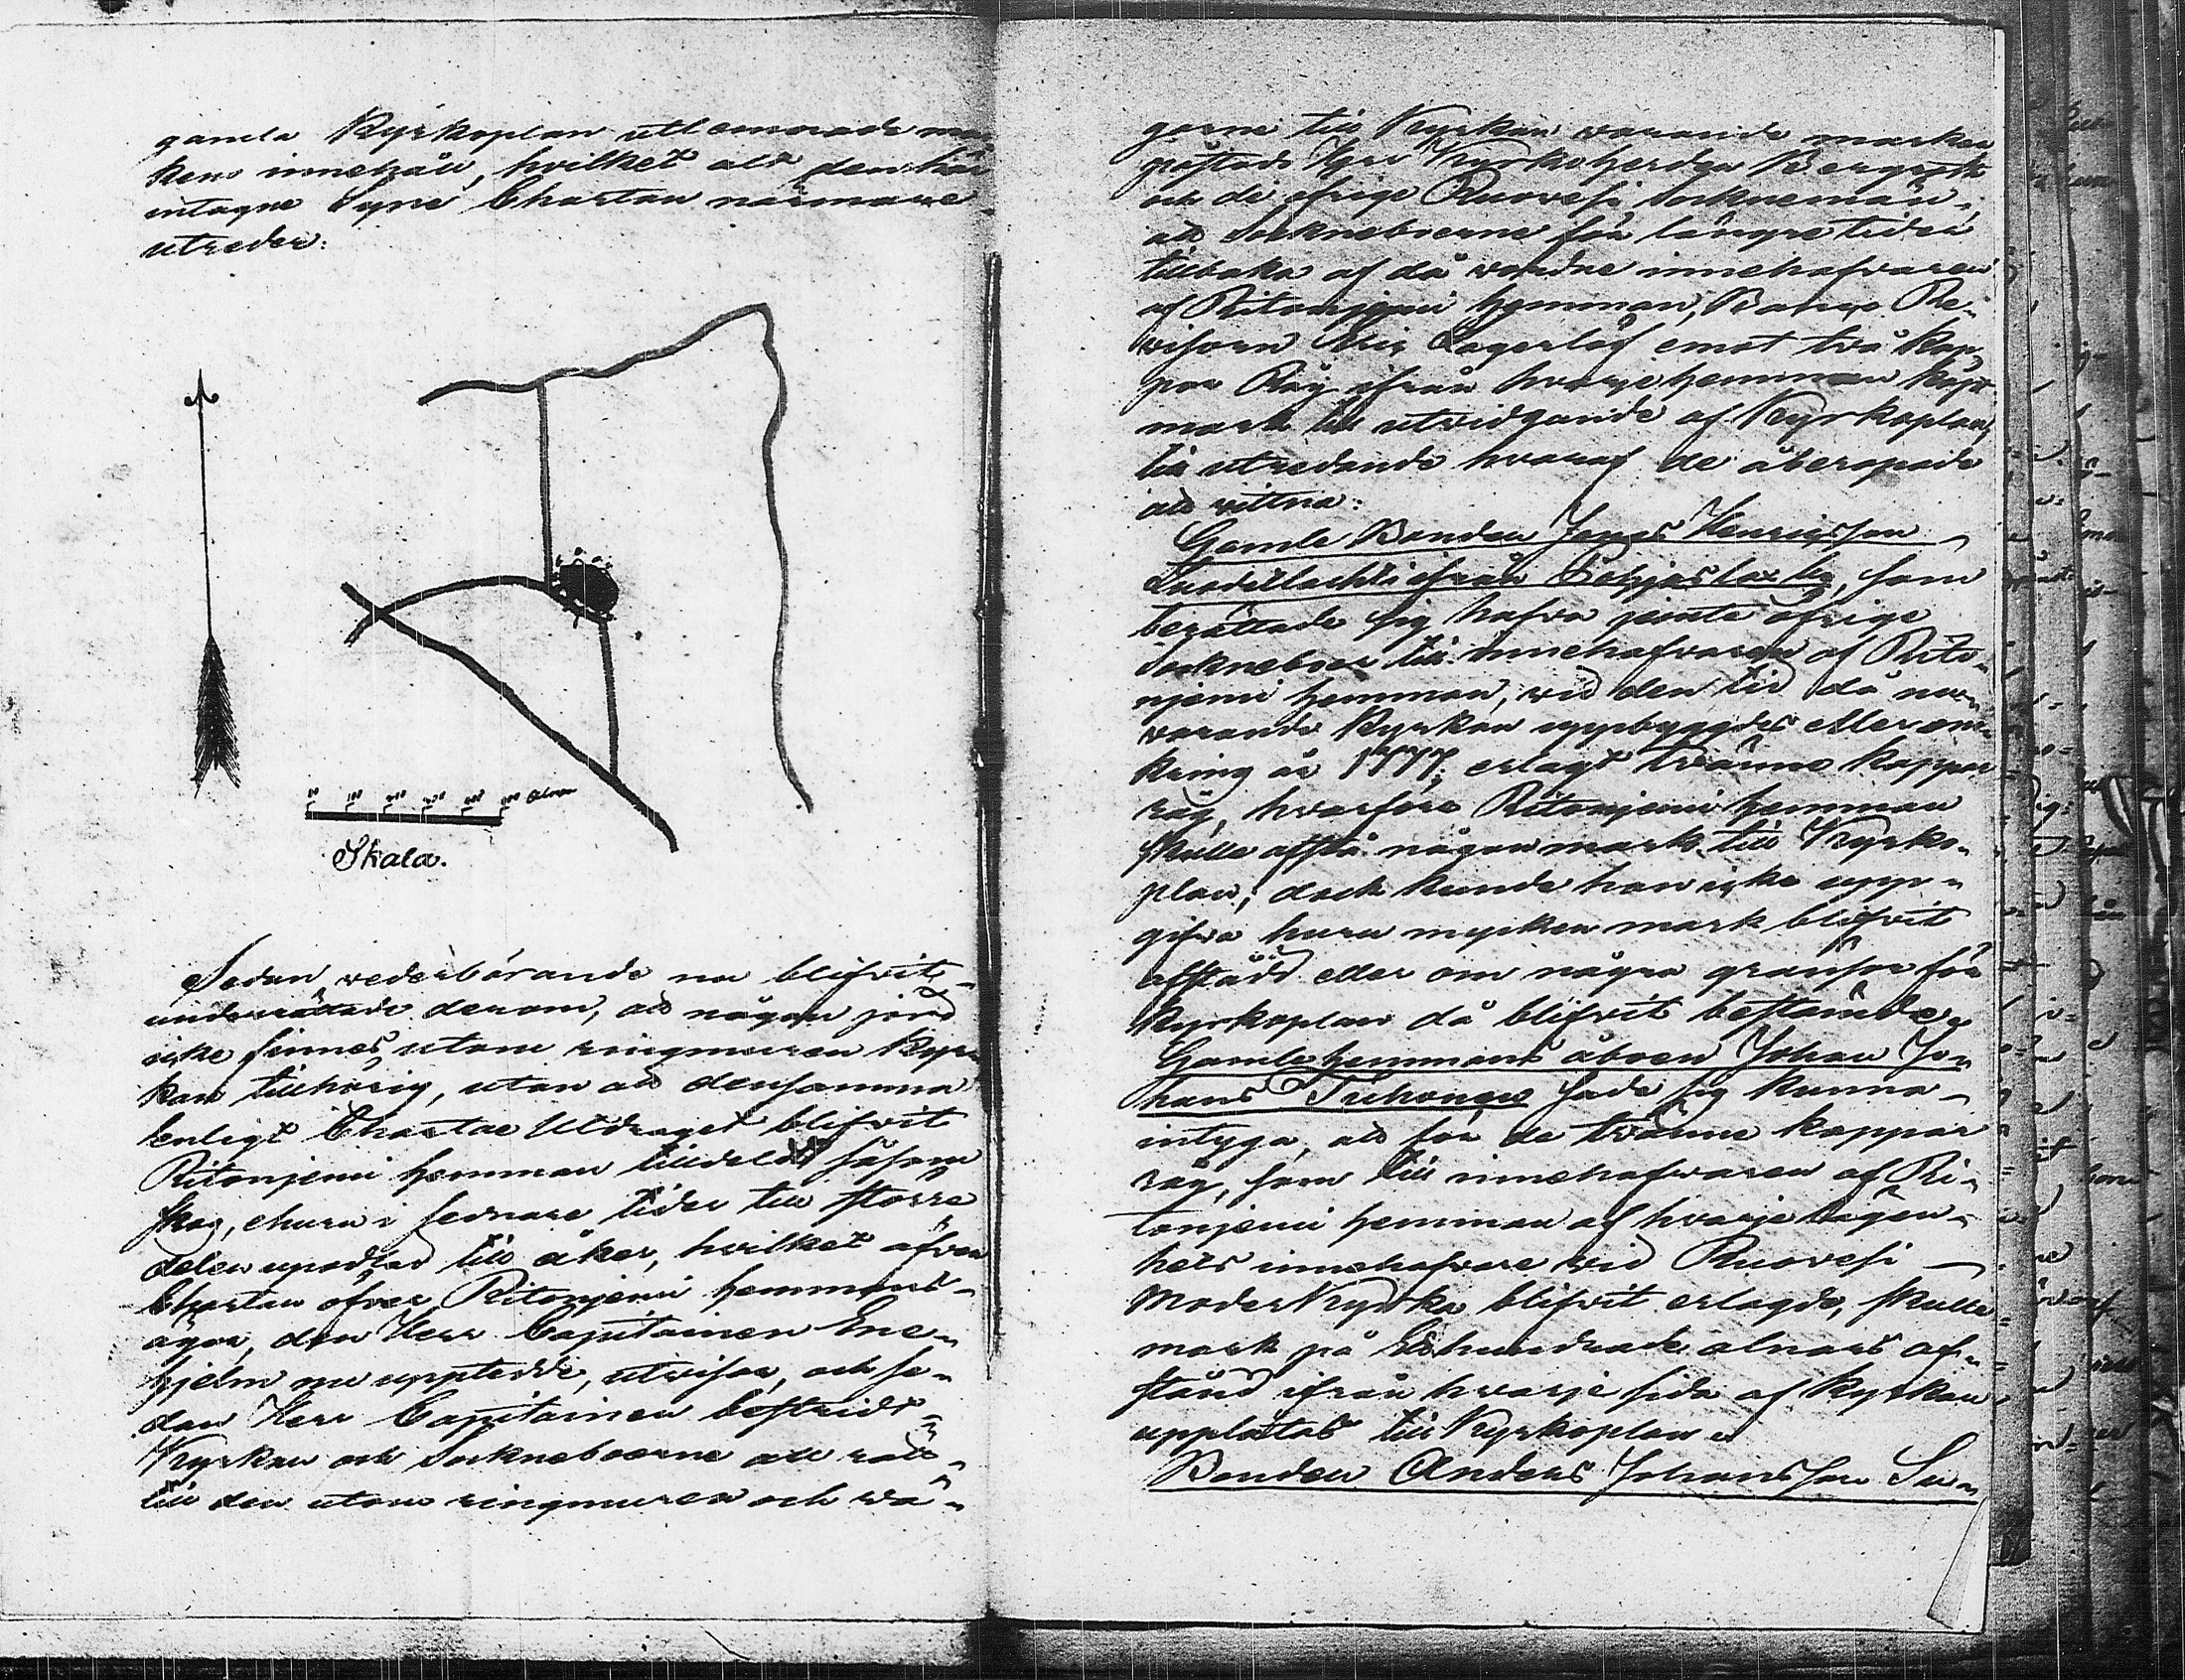 gamla Kyrkoplan utlemnade mar
kens innehåll, hvilket ald den här
intagne Syne Chartan närmare
utreder:
Alnar
Skala.
Sedan vederbörande nu blifvit
underrättade derom, att någon jord
icke finnes utom ringmuren Kyr
kan tillhörig, utan att densamma
enligt Chartae Utdraget blifvit
Ritoniemi hemman tilldelad såsom
skog, ehuru i sednare tider till större
delen upodlad till åker, hvilket äfven
Chartan öfver Ritoniemi hemmans
ägor, den Herr Capitainen Ene-
hjelm nu uppteedde, utvisar, och se-
dan Herr Capitainen bestridt
Kyrkan och Sockneboerne all rätt
till den utom ringmuren och vä-
garne till Kyrkan varande marken
påstodo Herr Kyrkoherden Bergroth
och de öfrige Ruovesi Socknemän,
att Sockneboerne för längre tider
tillbaka af då varande innehafvaren
af Ritoniemi hemman, Re-
visorn Lagerlöf emot två Kap-
par Råg ifrån hvarje hemman köpt
mark till utvidgande af Kyrkoplan,
till utredande hvaraf de åberopade
att vittna:
Gamle Bonden Jonas Henricsson
ifrån Pohjaslax by, som
berättade sig hafva jemte öfrige
Sockneboer till innehafvaren af Rito-
niemi hemman, vid den tid då nu-
varande Kyrkan uppbyggdes eller om-
kring år 1777, erlagt tvänne kappar
råg, hvarföre Ritoniemi hemman
skulle afstå någon mark till Kyrko-
plan; dock kunde han icke upp-
gifva huru mycken mark blifvit
afstådd eller om några gränsor för
Kyrkoplan då blifvit bestämde.
Gamle hemmans åboen Johan Jo-
hans Tuhonen sade sig kunna
intyga, att för de tvänne kappar
råg, som till innehafvaren af Ri-
toniemi hemman af hvarje lägen-
hets innehafvare vid Ruovesi
Moder Kyrka blifvit erlagde, skulle
mark på Etthundrade alnars af-
stånd ifrån hvarje sida af Kyrkan
upplåtas till Kyrkoplan.
Bonden Anders Johansson Su-